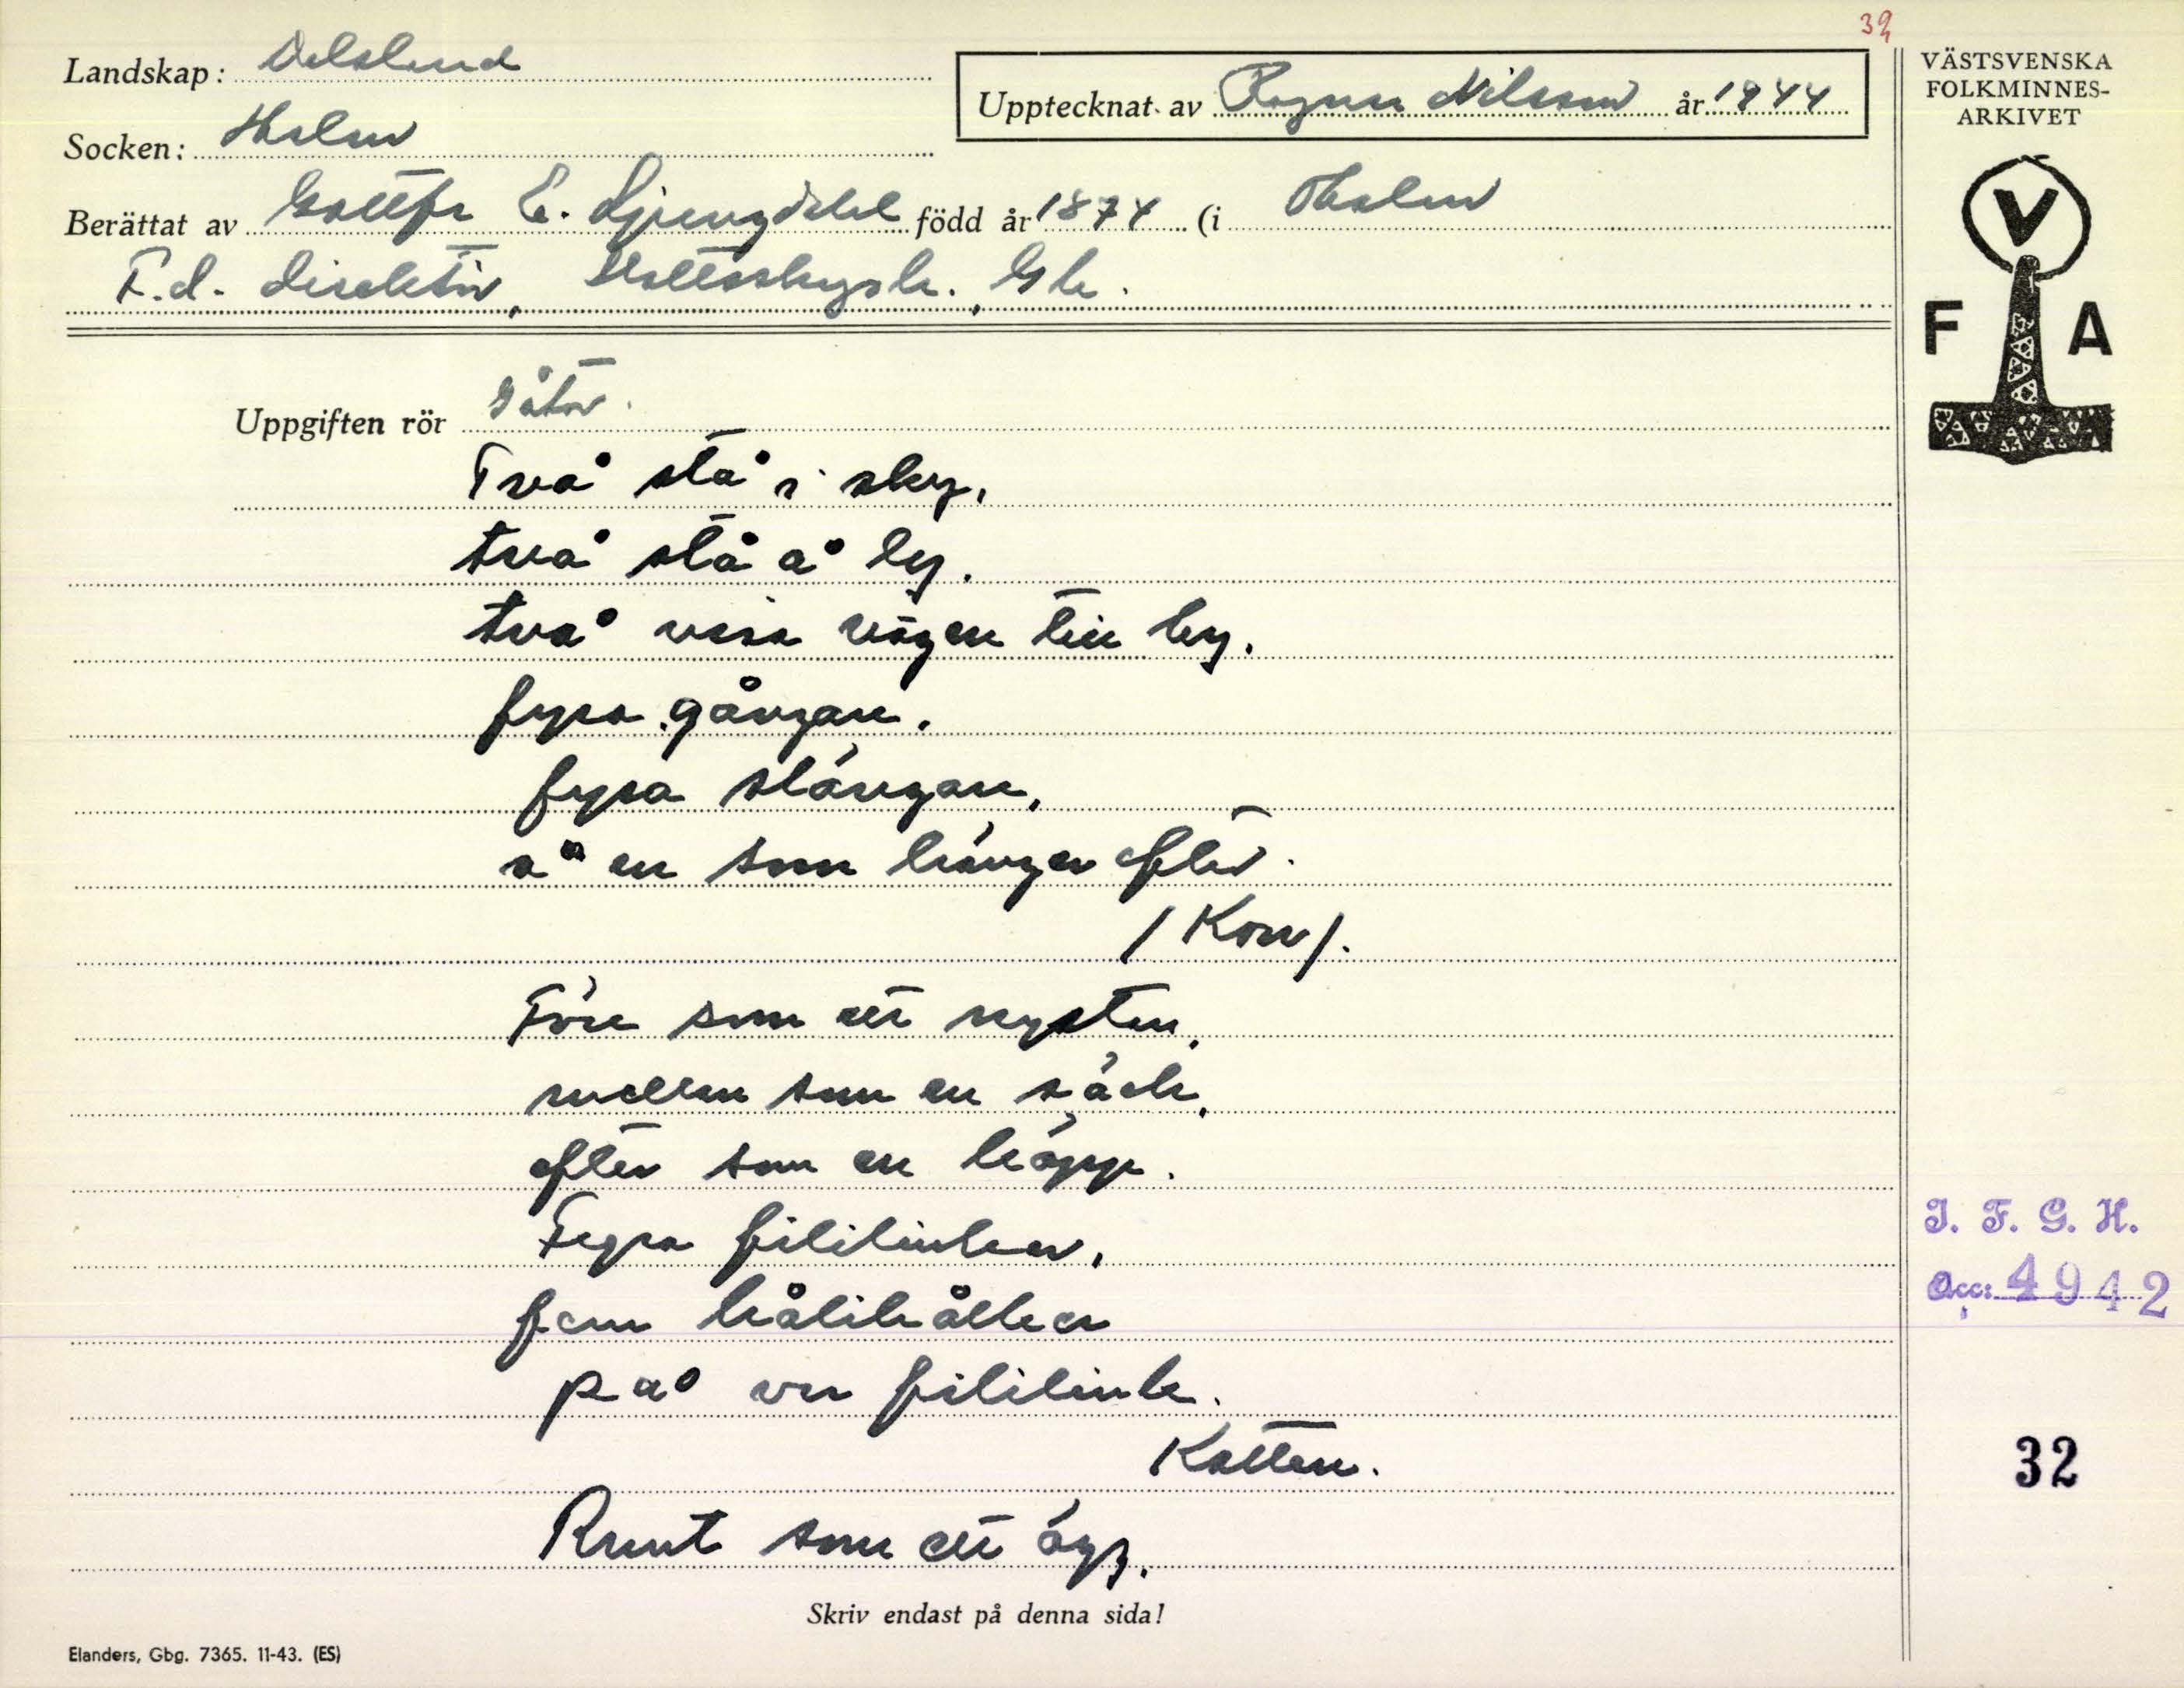 32
Landskap: Dalsland
Upptecknat av Ragnar Nilsson år 1944
VÄSTSVENSKA
FOLKMINNES-
ARKIVET
Socken: Holm
Berättat av Gottfr E. Ljungdahl född år 1874 (i Holm
F.d. direktör, Gbg.
V
F A
Uppgiften rör Gåtor.
Två stå i sky,
två stå å ly,
två visa vägen till by,
fyra gångan,
fyra slängan,
å en som hänger efter.
/Kon/.
Före som ett nystan,
mellan som en säck,
efter som en käpp.
Fyra fililinker,
fem hålihålker
på var fililink.
Katten.
Runt som ett ägg,
I. F. G. H.
Acc: 4942
32
Skriv endast på denna sida!
Elanders, Gbg. 7365. 11-43. (ES)